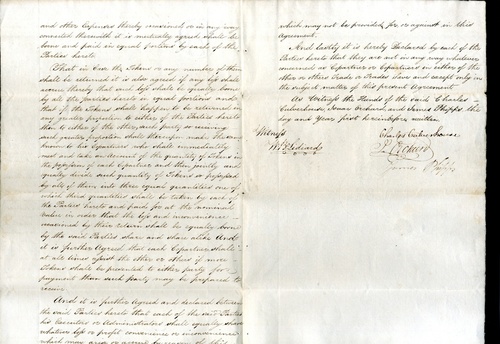 and other Expences thereby occasioned or in any way
connected therewith it is mutually agreed shall be
borne and paid in equal portions by each of the
Parties hereto
That in Case the Tokens or any number of them
shall be returned it is also agreed if any loss shall
accrue thereby that said loss shall be equally borne
by all the parties hereto in equal portions and
that if the Tokens shall happen to be returned in
any greater proportion to either of the Parties hereto
than to either of the other, such party so receiving
such greater proportion shall thereupon make the same
known to his Copartners who shall immediately
meet and take an Account of the quantity of Tokens in
the possession of each Copartner and then jointly and
equally divide such quantity of Tokens so possessed
by all of them into three equal quantities one of
which third quantities shall be taken by each of
the Parties hereto and paid for at the nominal
value in order that the loss and inconvenience
occasioned by their return shall be equally borne
by the said Parties share and share alike And
it is further Agreed that each Copartner shall
at all times assist the other or others if more
Tokens shall be presented to either party for
payment than such party may be prepared to
receive
And it is further Agreed and declared between
the said Parties hereto that each of the said Parties
his Executors or Administrators shall equally share
whatever loss or profit convenience or inconvenience
which may arise or accrue by reason of this
which may not be provided for or against in this
Agreement.
And lastly it is hereby Declared by each of the
Parties hereto that they are not in any way whatever
concerned as Copartner or Copartners in either of the
other or others Trade or Trades save and except only in
the subject matter of this present Agreement
As Witness the Hands of the said Charles
James Orchard and James Phipps the
day and Year first hereinbefore written
Witness
Charles
J. Orchard
James Phipps